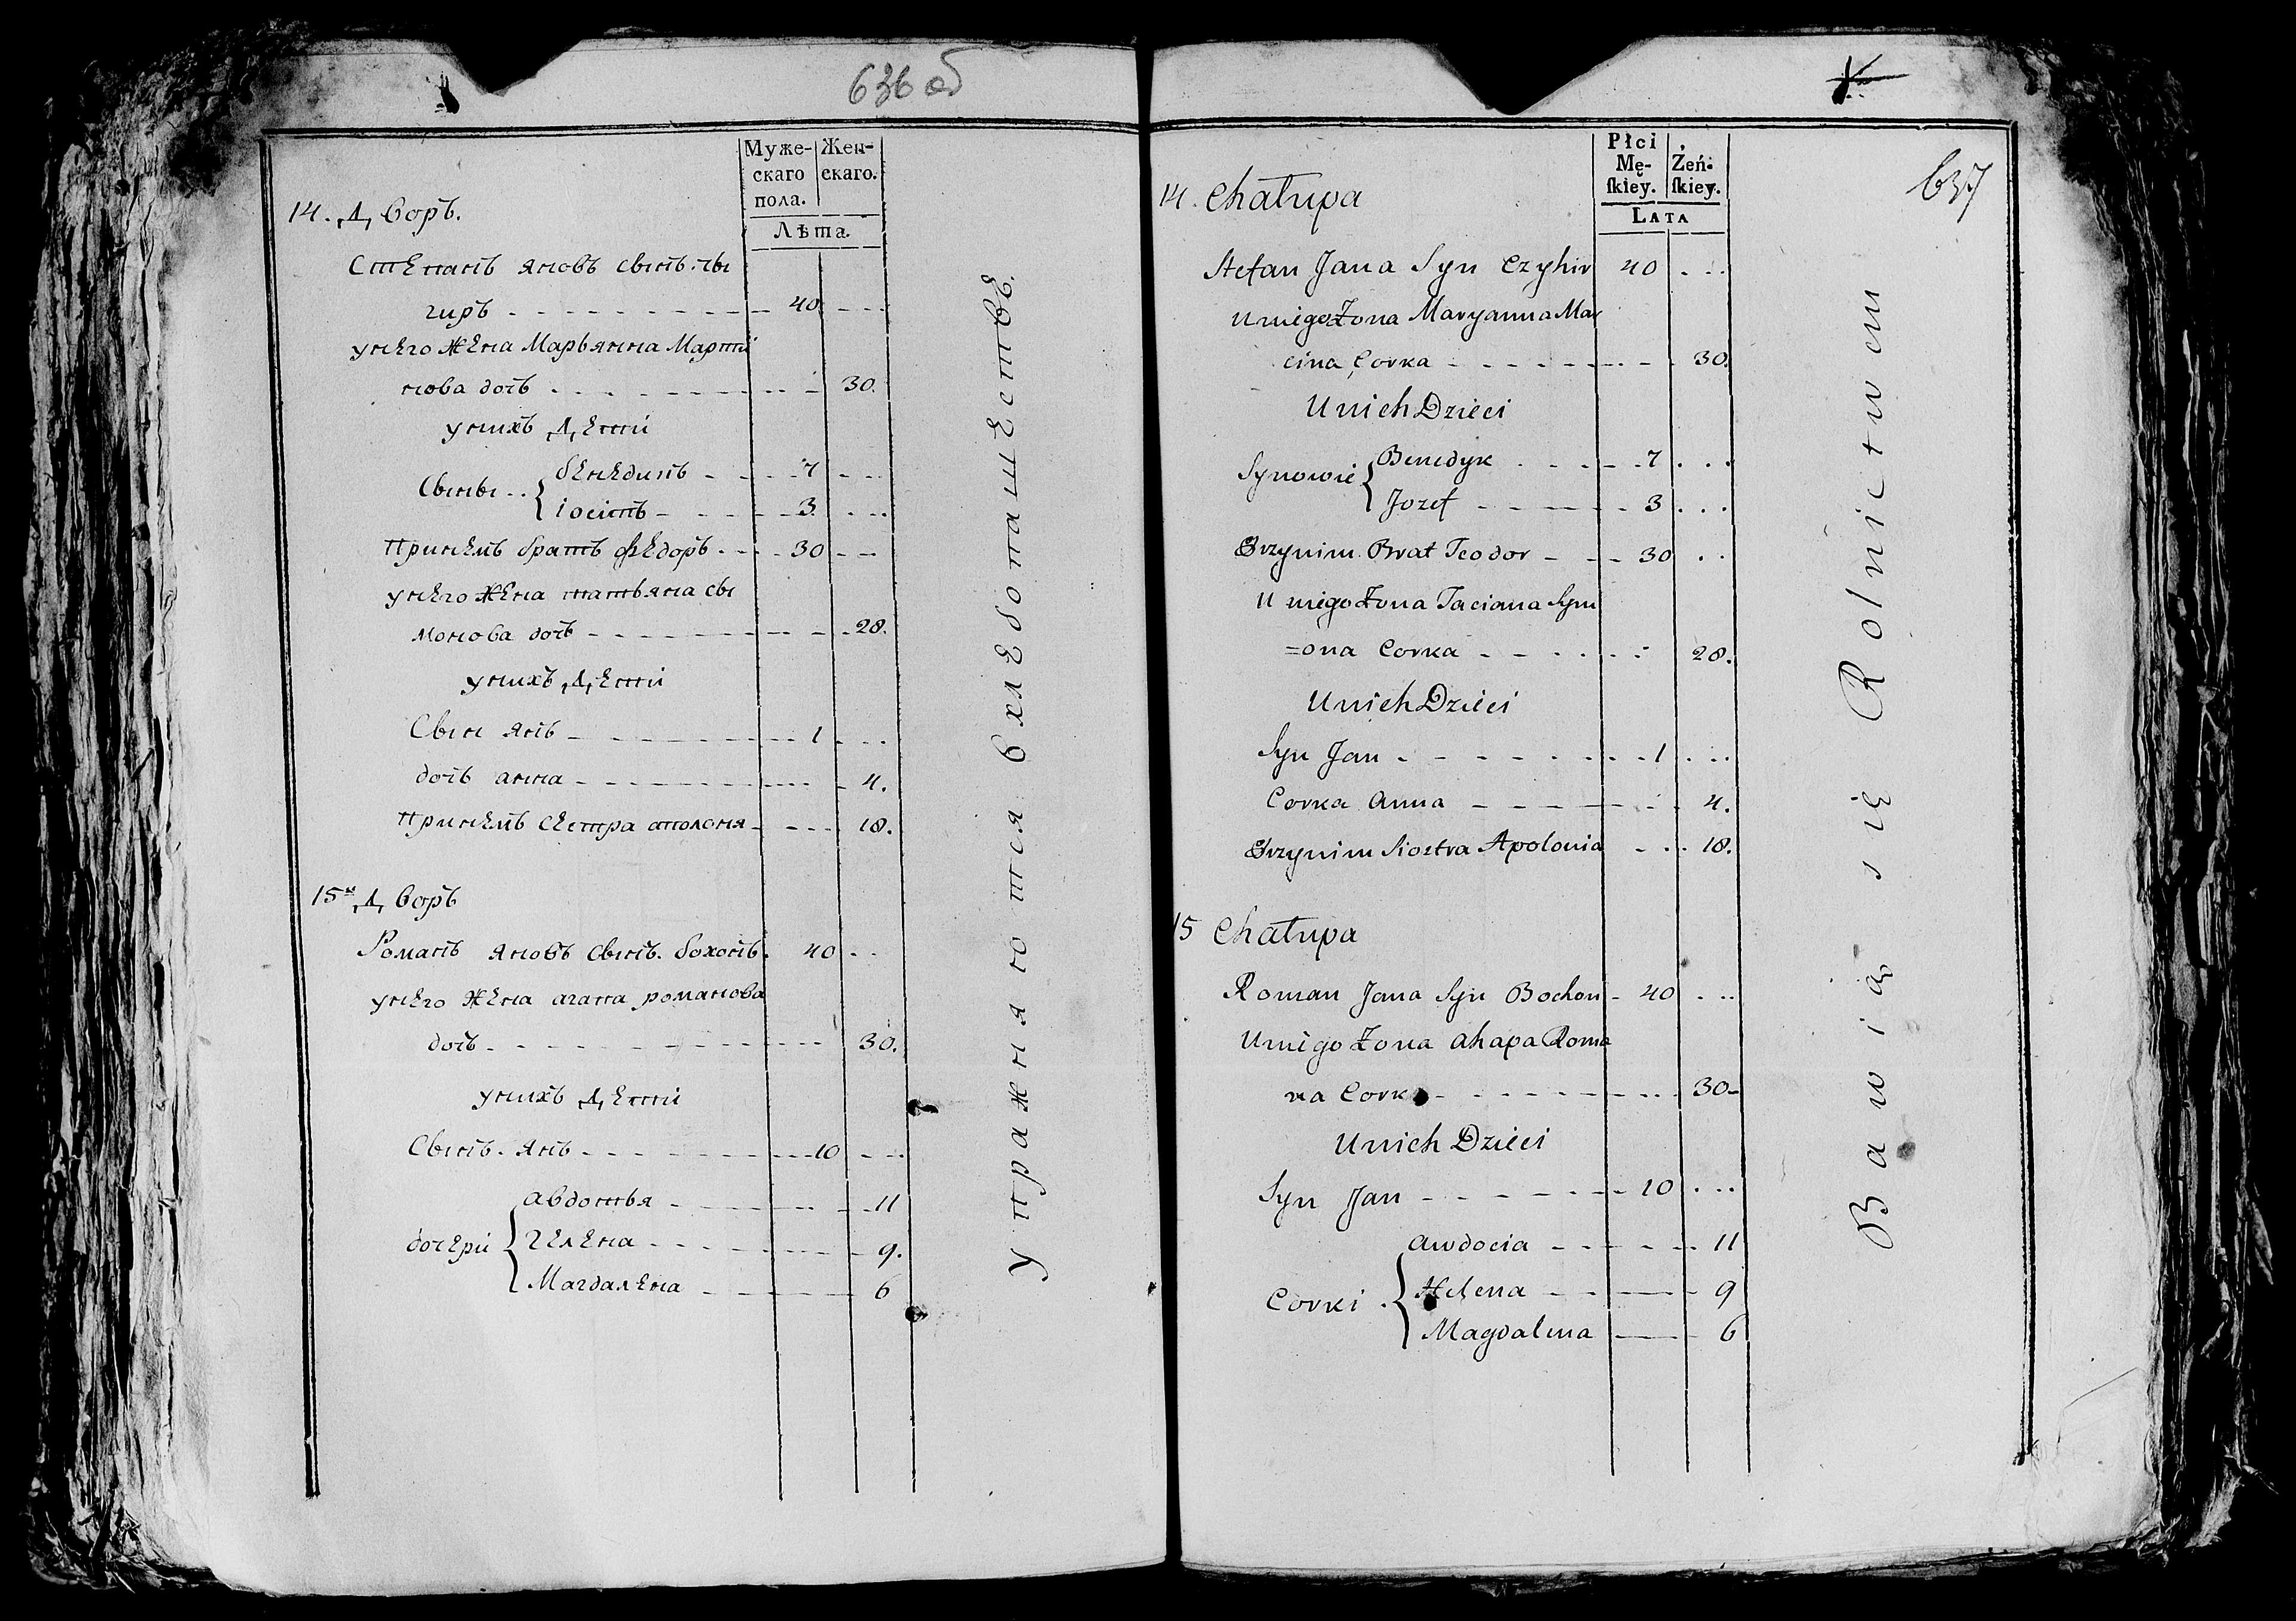 636 об
Муже-
скаго
пола.
Жен-
скаго.
Лѣта.
14. Дворъ.
Степанъ Яновъ сынъ. чы
гиръ 40
у него жена Марьянна Марти
нова дочь 30.
у нихъ дети
Сыны бенедикъ 7
іосипъ 3
при немъ братъ федоръ 30
у него жена татьяна сы
монова дочь 28.
у нихъ дети
Сын янъ 1
дочь анна 4.
при немъ сестра аполоня 18.
15й Дворъ
Романъ яновъ сынъ. бохонъ. 40
у него жена агапа романова
дочь 30.
у нихъ дети
Сынъ. янъ 10
дочери авдотья 11
гелена 9.
Магдалена 6
упражняются в хлебопашестве.
637
Płci
Mę-
skiey.
Żeń-
skiey.
LATA
14. Chałupa
Stefan Jana Syn Czyhir 40
U niego Żona Maryanna Mar
cina Corka 30.
U nich Dzieci
Synowie Benedyk 7
Jozef 3
Przynim Brat Teodor 30
U niego Żona Taciana Sym
=ona Corka 28.
U nich Dzieci
Syn Jan 1
Corka Anna 4.
Przynim Siostra Apolonia 18.
15 Chałupa
Roman Jana Syn Bochon 40
U niego Żona Ahapa Roma
na Corka 30
U nich Dzieci
Syn Jan 10
Corki Awdocia 11
Helena 9
Magdalena 6
Bawią się Rolnictwem